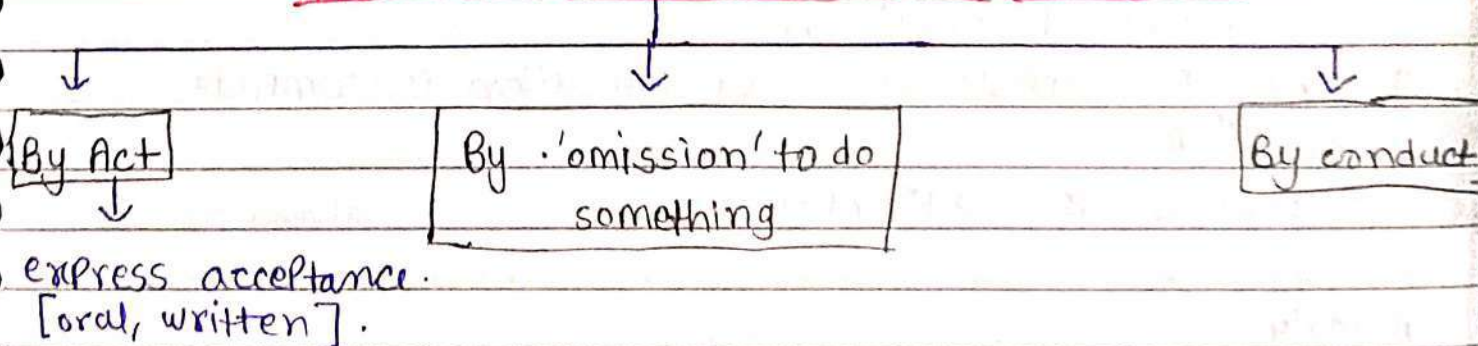 By Act
By 'omission' to do
something
By conduct
express acceptance.
[oral, written].